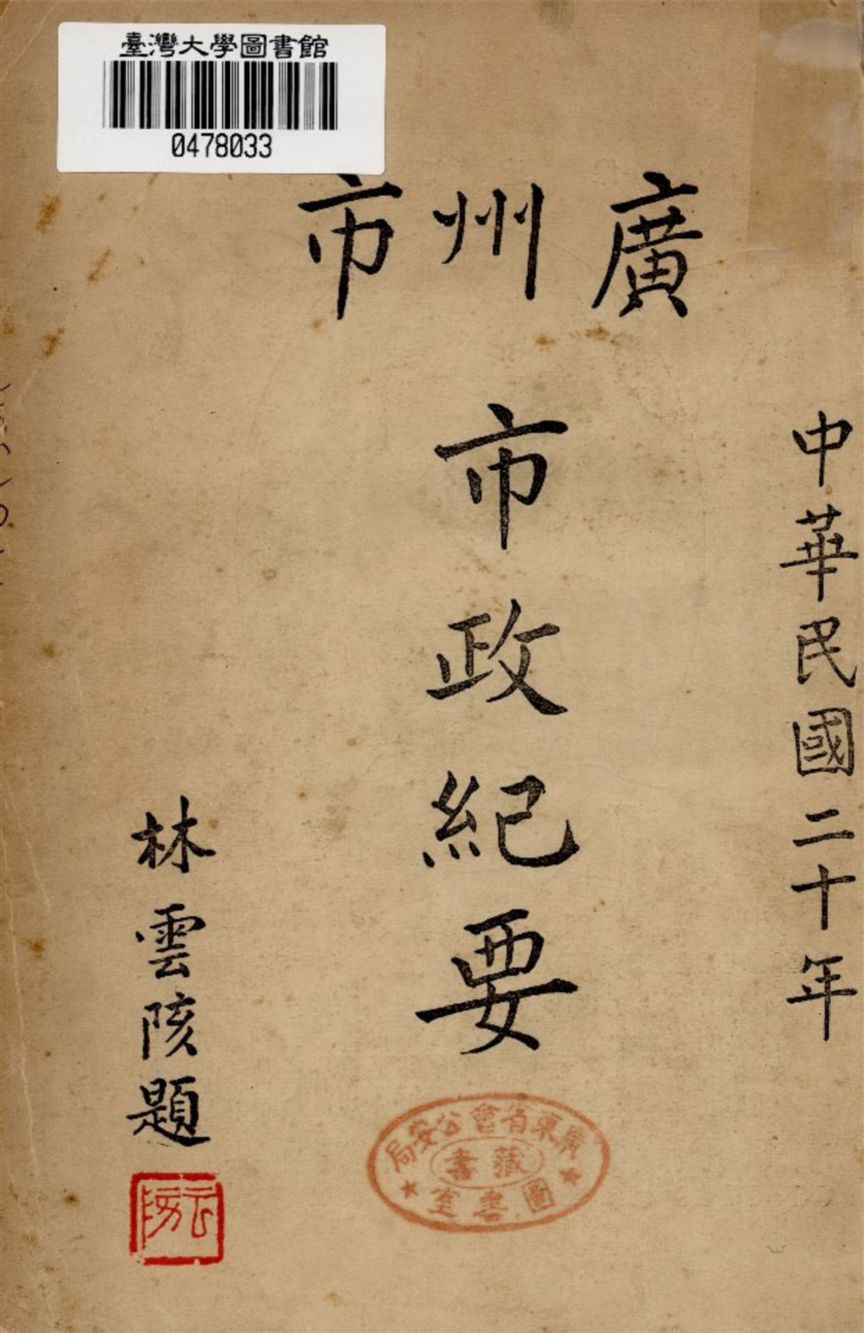 臺灣大學圖書館
0478033
中華民國二十年
廣州市
市政紀要
林雲陔題
雲陔
廣東省會公安局
藏書
圖書室